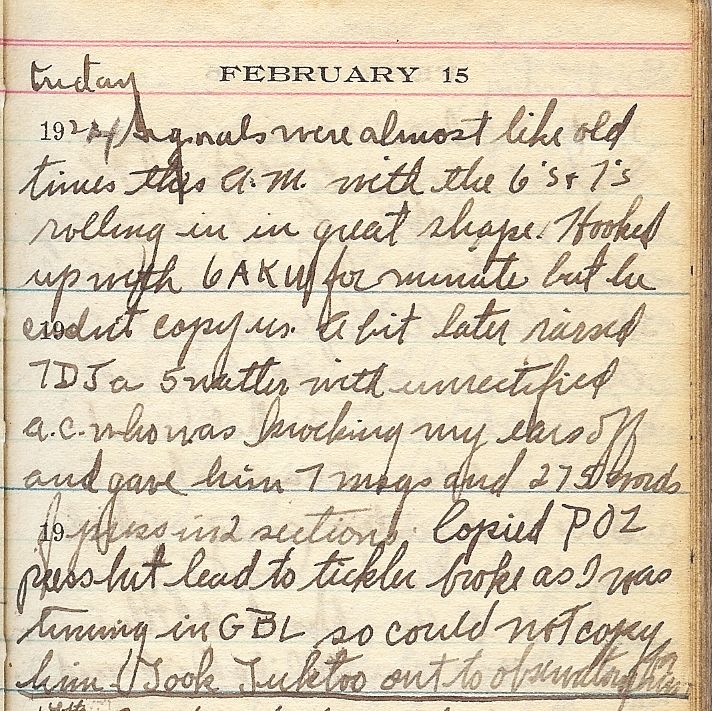 Friday
FEBRUARY 15
1924 Signals were almost like old
times this A.M. with the 6's & 7's
rolling in in great shape. Hooked
up with 6AKW for minute but he
19 couldnt copy us. A bit later raised
7DJ a 5 watter with unrectified
a.c. who was knocking my ears off
and gave him 7 msgs and 275 words
19 of press in 2 sections. Copied POZ
press but lead to tickler broke as I was
tuning in GBL so could not copy
him. (Took Tuktoo out to observatory for